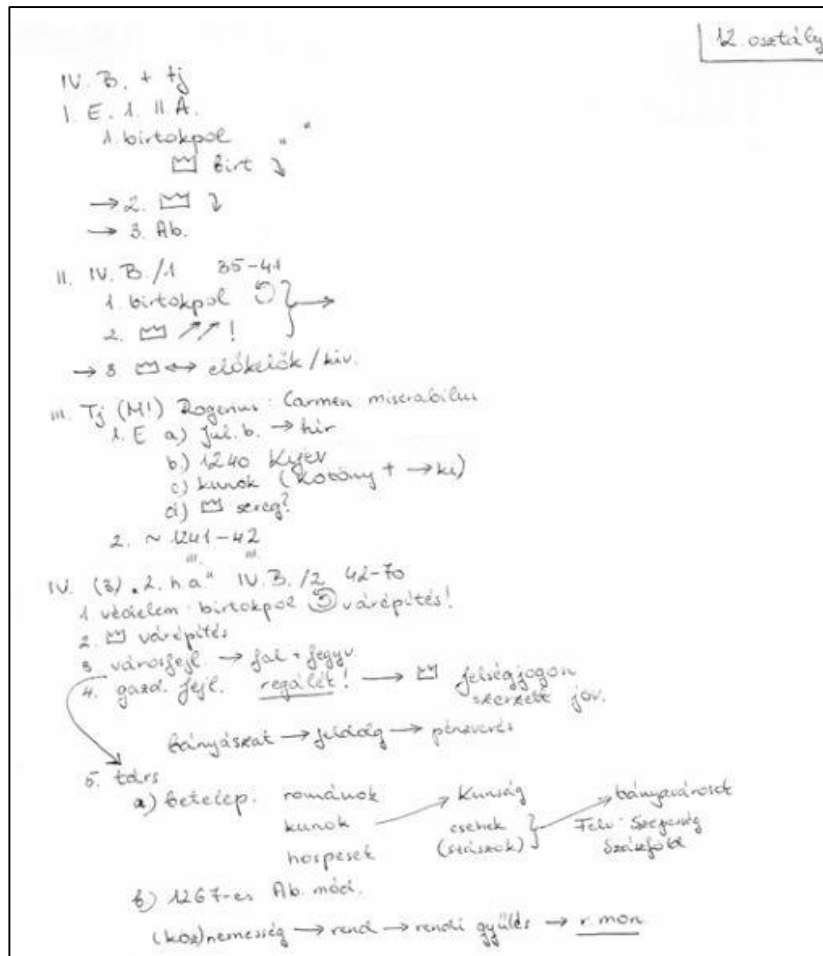 12. osztály
IV. B. + tj
I. E. 1. II A.
1. birtokpol " "
birt ↘
→ 2. ↘
→ 3. Ab.
II. IV. B./1 35-41
1. birtokpol
2. ↗↗!
→ 3. ↔ előkelők/kiv.
III. Tj (M!) Rogerius: Carmen miserabilus
1. E a) Jul. b. → hír
b.) 1240 Kijev
c) kunok (Kötöny + → ki)
d) sereg?
2. ~ 1241-42
III. III.
IV. (3) „2. h.a." IV. B./2 42-70
1. védelem birtokpol várépítés!
2. várépítés
3. városfejl. → fal + fegyv.
4. gazd. fejl. regálét! → felségjogon
szerzett jöv.
bányászat → földdg → pénzverés
5. társ
a) betelep. románok Kunság bányavárosok
kunok csehek Felv: Szepesség
hospesek (szászok) Szászföld
b) 1267-es Ab. mód.
(köz)nemesség → rend → rendi gyűlés → r. mon.